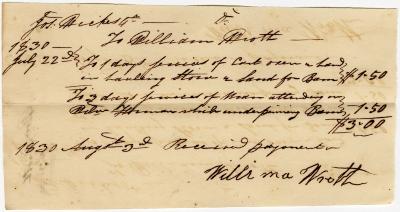 Jos. Hicks Dr
To William Wroth
1830
July 22d To 1 days services of Cart oxen & hand,
in hauling Stone & Sand for Barn, $1.50
To 3 days services of man attending on,
while underpinning Barn, 1.50
$3.00
1830 Augst 3d Received payment
William Wroth